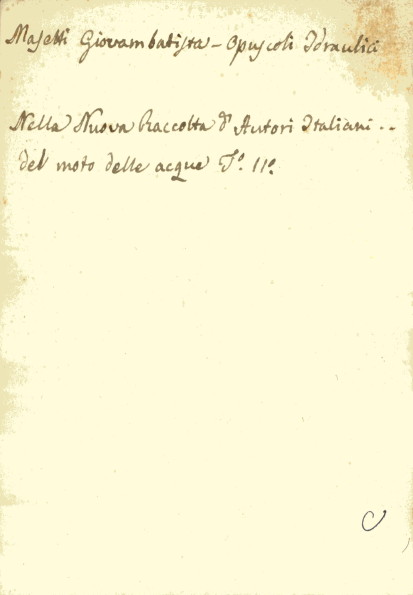 Masetti Giovambatista - Opuscoli Idraulici
Nella Nuova Raccolta d' Autori Italiani ..
del moto delle acque T.º 11º.